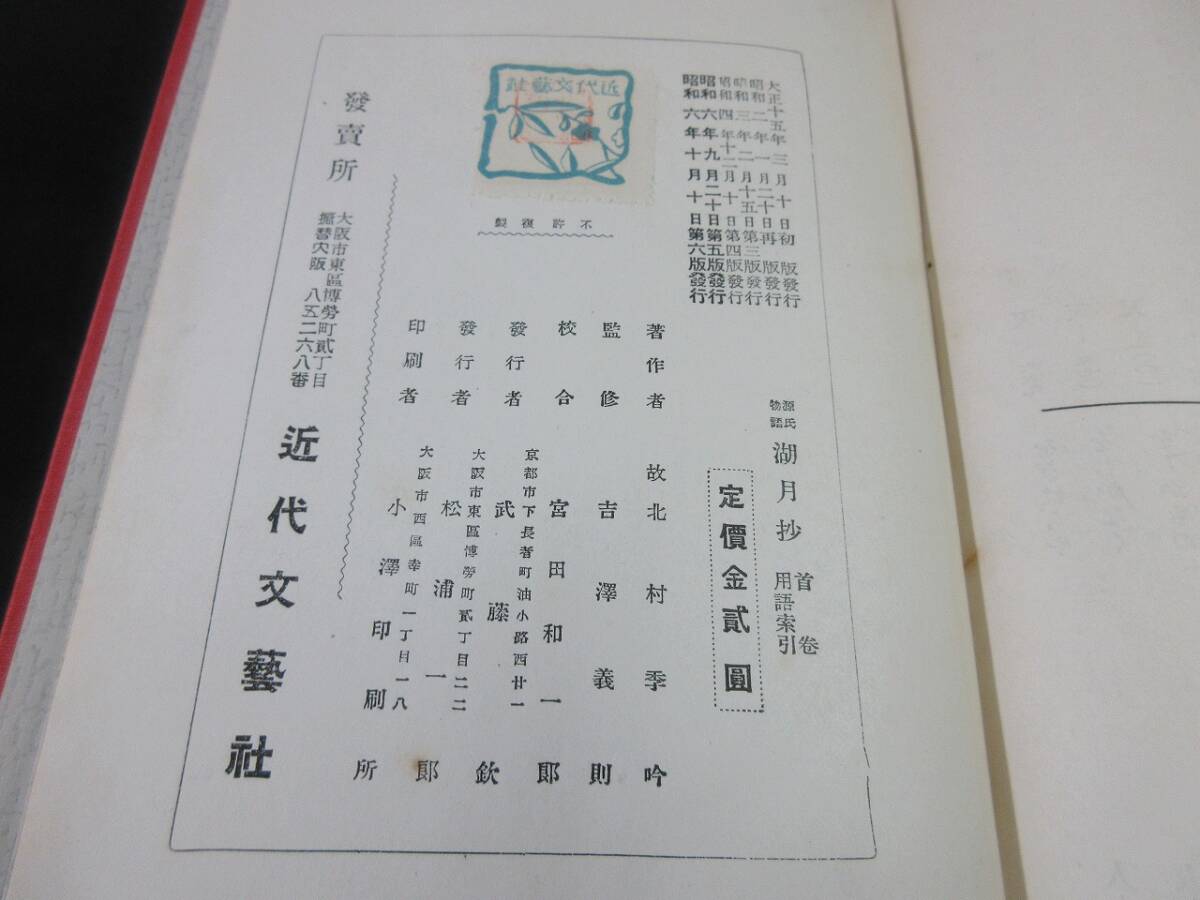 大正十五年三月十日初版發行
昭和二年一月二十日再版發行
昭和三年二月十五日第三版發行
昭和四年十二月十日第四版發行
昭和六年九月二十日第五版發行
昭和六年十月十日第六版發行
源氏物語 湖月抄 首卷 用語索引
定價金貳圓
著作者 故北村季吟
監修 吉澤義則
校合 宮田和一郞
京都市下長者町油小路西廿一
發行者 武藤欽
大阪市東區博勞町貳丁目二二
發行者 松浦一郞
大阪市西區幸町一丁目一八
印刷者 小澤印刷所
近代文藝社
不許複製
發賣所
大阪市東區博勞町貳丁目
振替大阪八五二六八番
近代文藝社